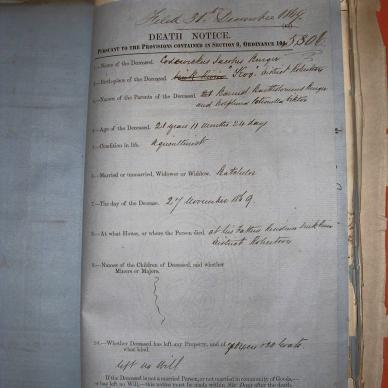 Filed 31st December 1869.
DEATH NOTICE.
PURSUANT TO THE PROVISIONS CONTAINED IN SECTION 9, ORDINANCE 104
5,806
1.—Name of the Deceased. Jacobus Burger
2.—Birth-place of the Deceased. "Kog" District Robertson
3.—Names of the Parents of the Deceased. Barend Bartholomeus Burger
and
4.—Age of the Deceased. 21 years 11 months 24 day
5.—Condition in life. Agriculturist
6.—Married or unmarried, Widower or Widow. Batchelor
7.—The day of the Decease. 27 November 1869.
8.—At what House, or where the Person died. at his Fathers Residence
District Robertson
9.—Names of the Children of Deceased, and whether
Minors or Majors.
10.—Whether Deceased has left any Property, and of
what kind.
Left no Will
If the Deceased is not a married Person, or not married in community of Goods,—
or has left no Will,—this notice must be made within Six Days after the death